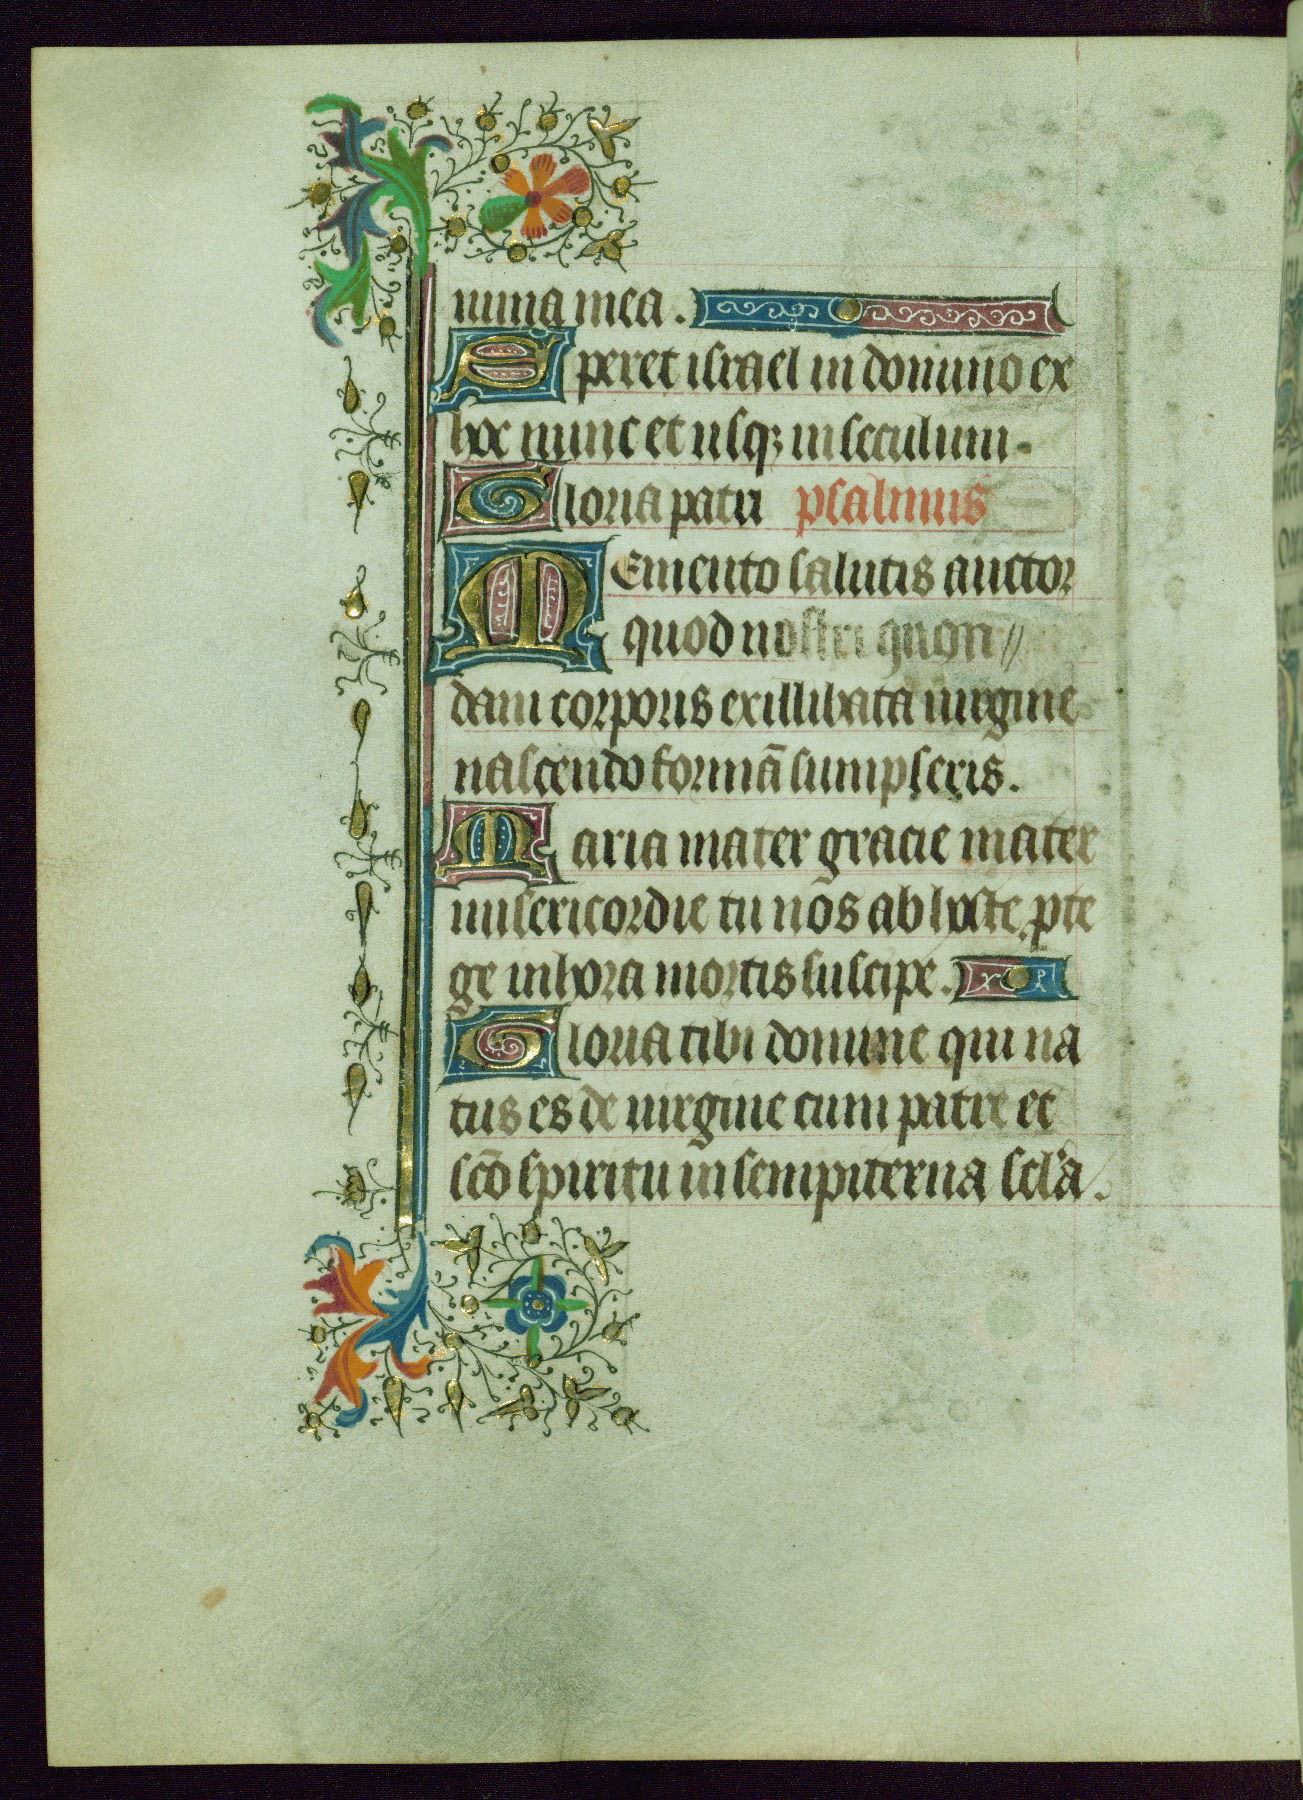 nima mea.
Speret israel in domino ex
hoc nunc et usq; in seculum.
Gloria patri psalmus
Memento salutis auctor
quod nostri quon//
dam corporis exillibata uirgine
nascendo formā sumpseris.
Maria mater gracie mater
misericordie tu nos ab hoste pte
ge in hora mortis suscipe.
Gloria tibi domine qui na
tus es de uirgine cum patre et
sc̄o spiritu in sempiterna scl'a.